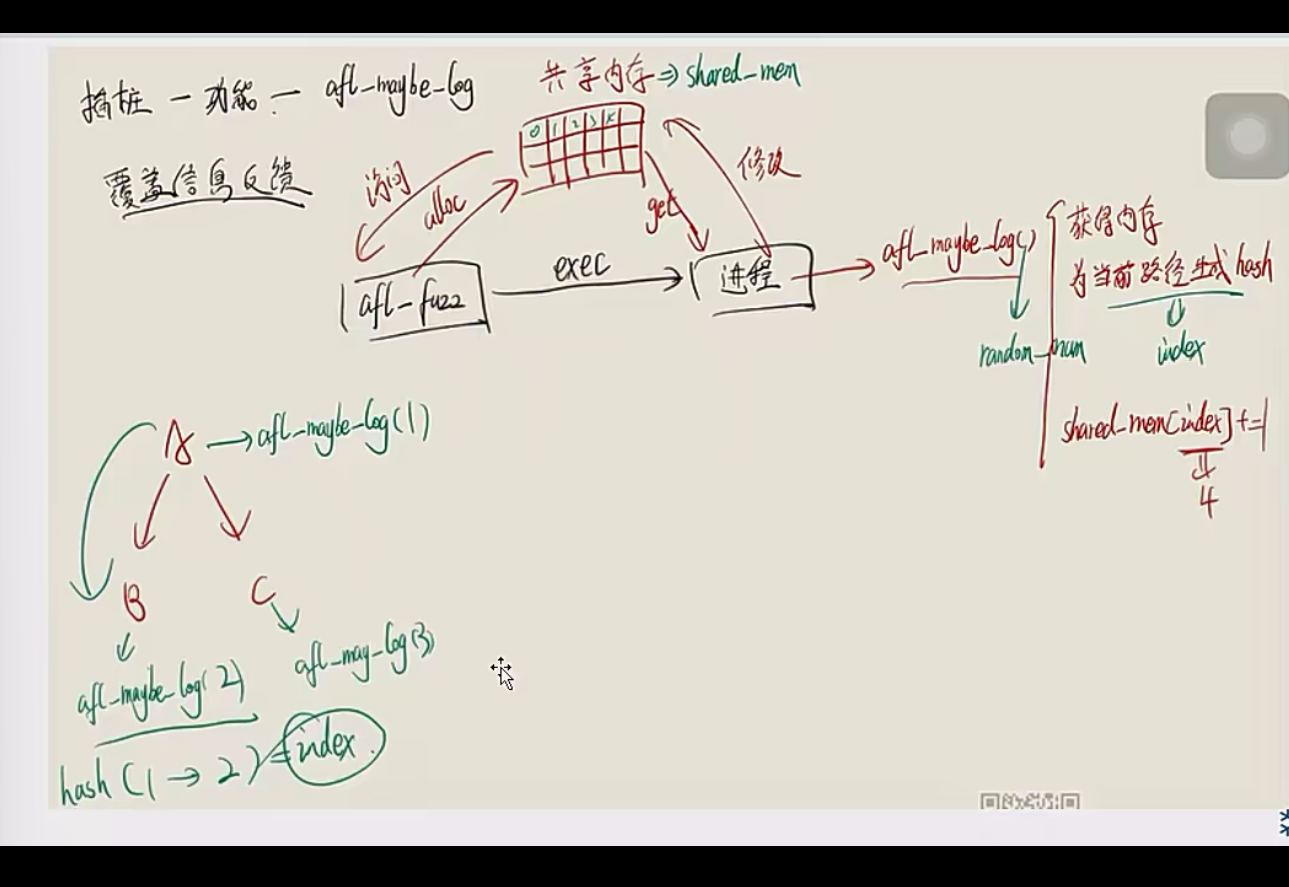 插桩 — 功能 — afl-maybe-log
覆盖信息反馈
共享内存 ⇒ shared-mem
0 1 2 3 4
访问
alloc
get
修改
afl-fuzz
exec
进程
afl-maybe-log()
random-num
获得内存
为当前路径生成hash
index
shared-mem[index]+=1
4
A → afl-maybe-log(1)
B
C
afl-maybe-log(2)
afl-may-log(3)
hash(1→2)=index.